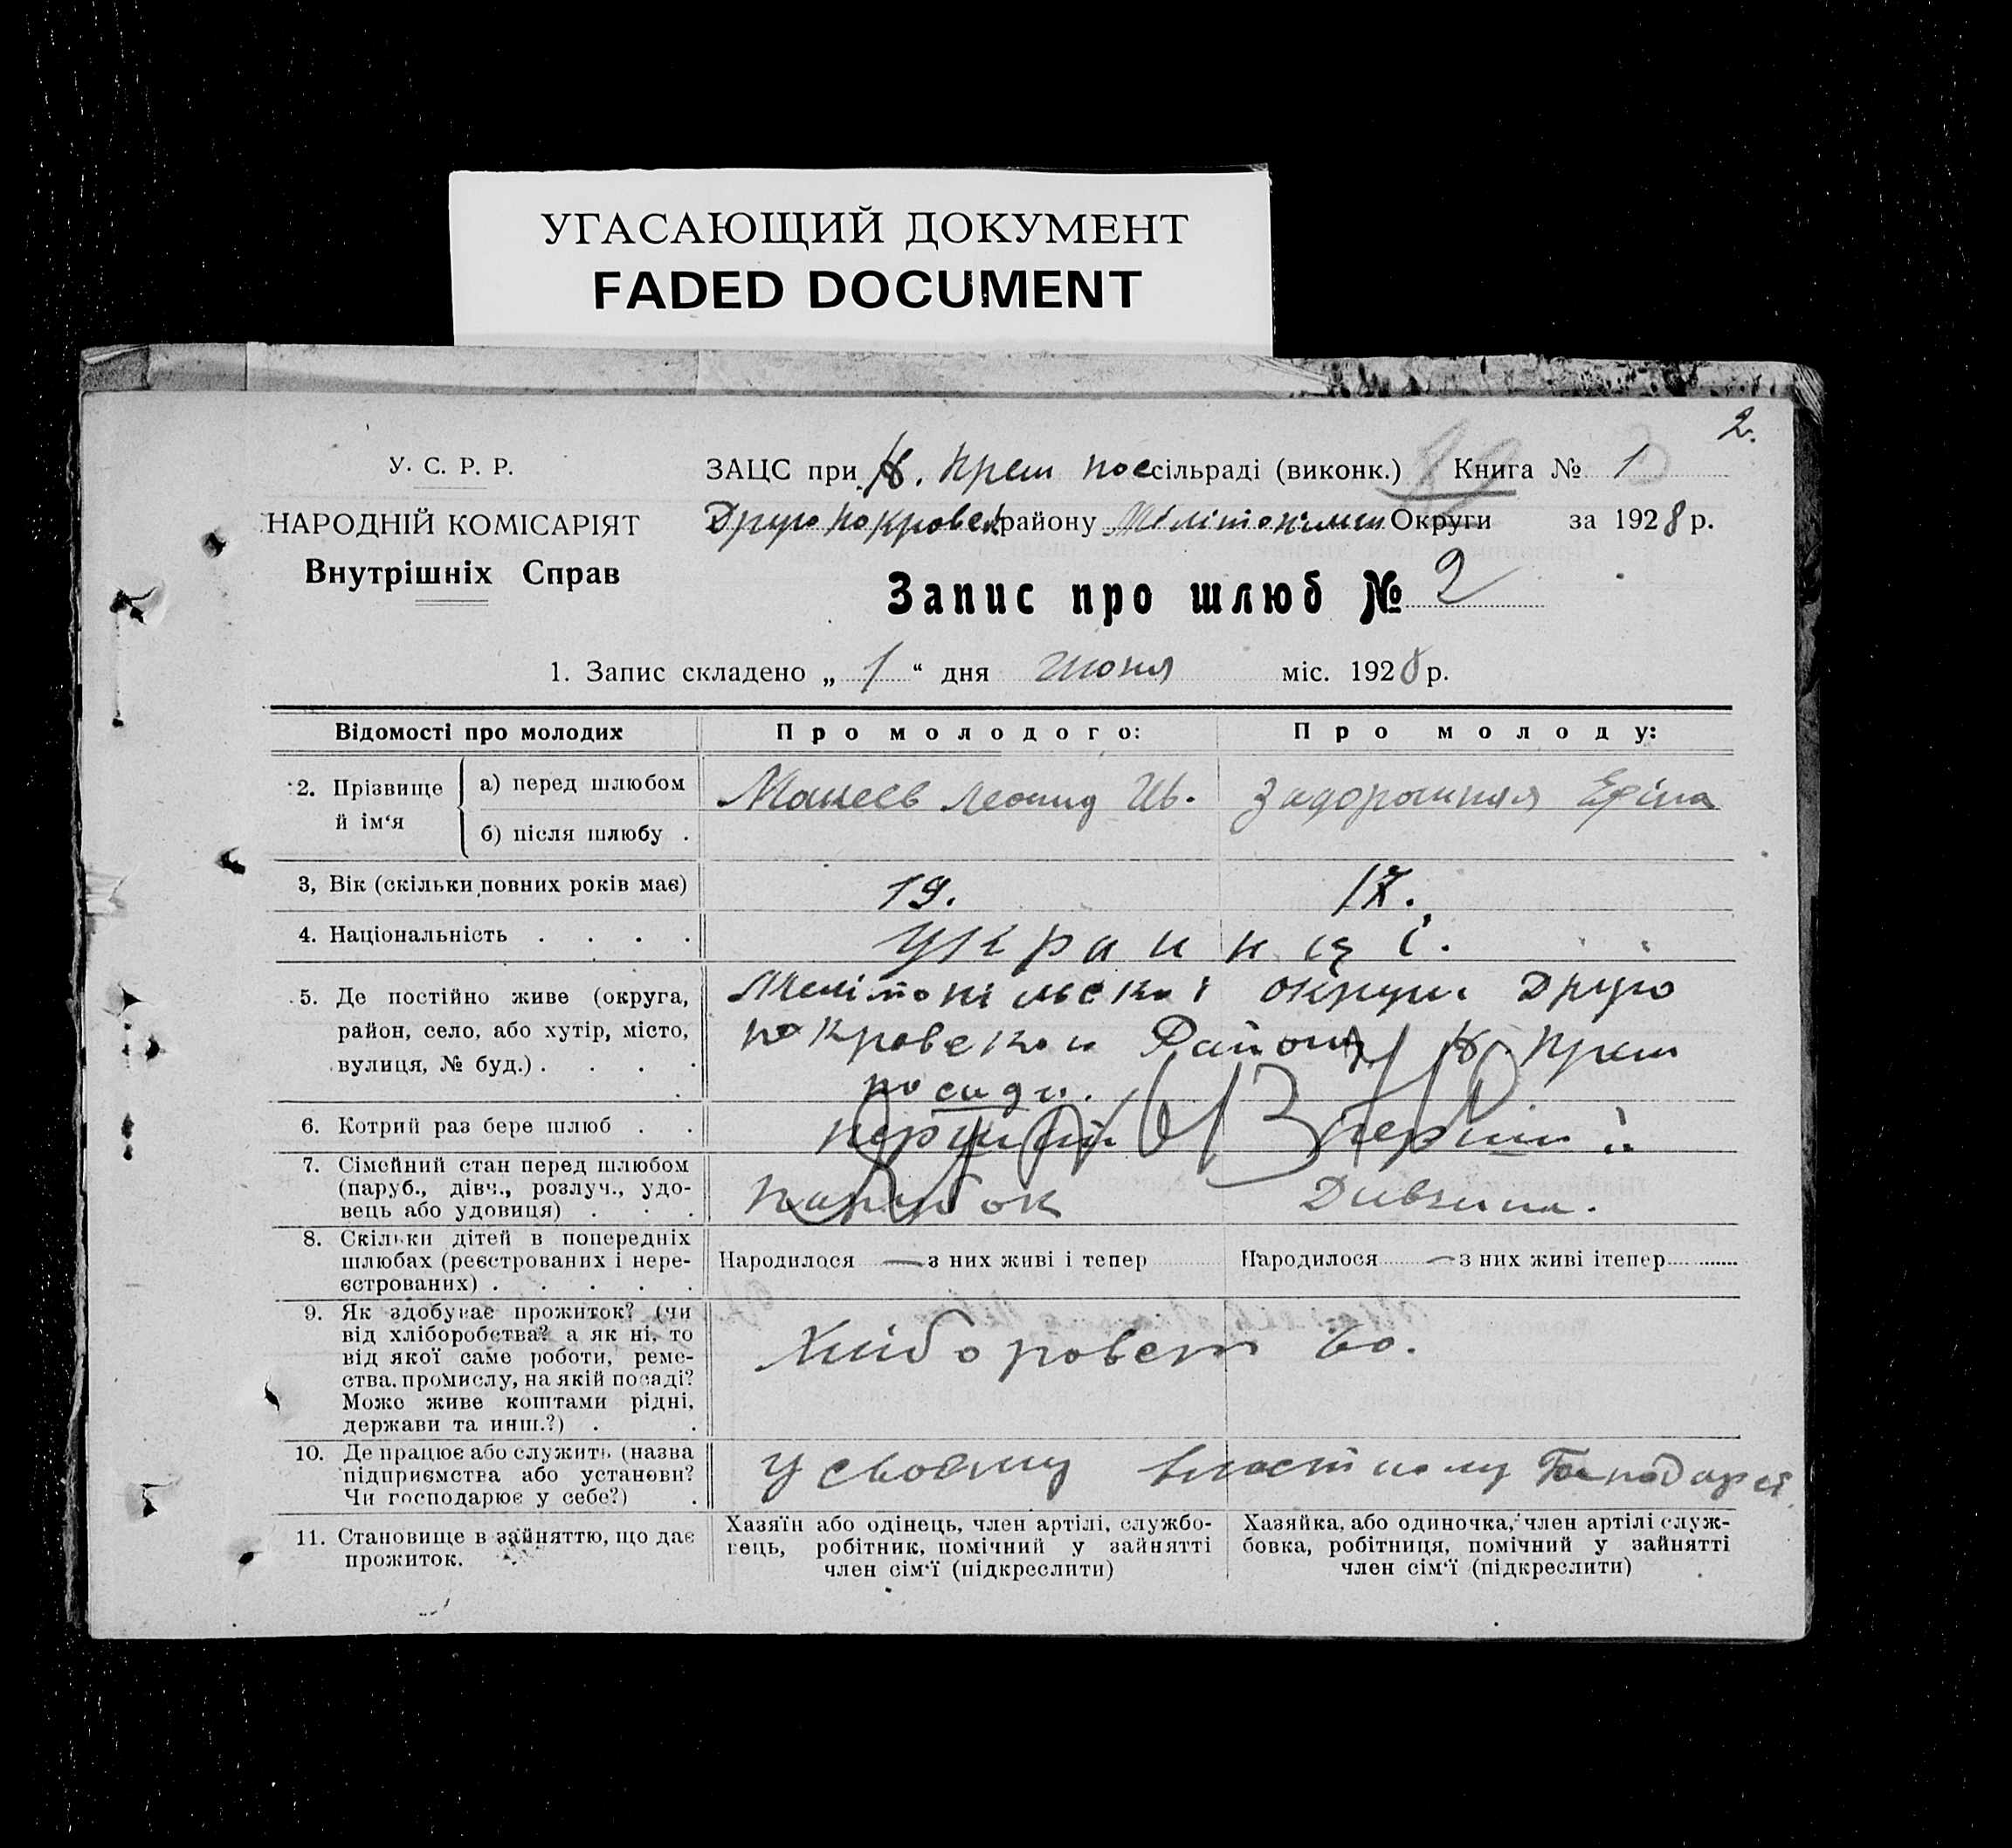 УГАСАЮЩИЙ ДОКУМЕНТ
FADED DOCUMENT
2.
У. С. Р. Р.
НАРОДНІЙ КОМІСАРІЯТ
Внутрішніх Справ
ЗАЦС при Н. Крем пос сільраді (виконк.) Книга № 1
Другопокровськ району Мелітопільск Округи за 1928 р.
Запис про шлюб № 2
1. Запис складено „ 1 “ дня июня міс. 1928 р.
Відомості про молодих
Про молодого:
Про молоду:
2. Прізвище й ім‘я
а) перед шлюбом
б) після шлюбу .
Леонид Ив.
Задорожная
3, Вік (скільки повних років має)
19.
4. Національність . . . .
Украинці.
5. Де постійно живе (округа,
район, село, або хутір, місто,
вулиця, № буд.) . . . .
Мелітопільскоі округи Друго
покровскои Району
6. Котрий раз бере шлюб . .
перший
перший
7. Сімейний стан перед шлюбом
(паруб., дівч., розлуч., удо-
вець або удовиця) . . .
Парубок
Дивчина.
8. Скільки дітей в попередніх
шлюбах (реєстрованих і нере-
єстрованих) . . . . .
Народилося — з них живі і тепер
Народилося — з них живі ітепер
9. Як здобуває прожиток? (чи
від хліборобства? а як ні, то
від якої саме роботи, реме-
ства, промислу, на якій посаді?
Може живе коштами рідні,
держави та инш.?) . .
Хліборобство.
10. Де працює або служить (назва
підприємства або установи?
Чи господарює у себе?) .
У своєму властному Господарсі
11. Становище в зайняттю, що дає
прожиток.
Хазяїн або одінець, член артілі, службо-
вець, робітник, помічний у зайнятті
член сім‘ї (підкреслити)
Хазяйка, або одиночка, член артілі служ-
бовка, робітниця, помічний у зайнятті
член сім‘ї (підкреслити)